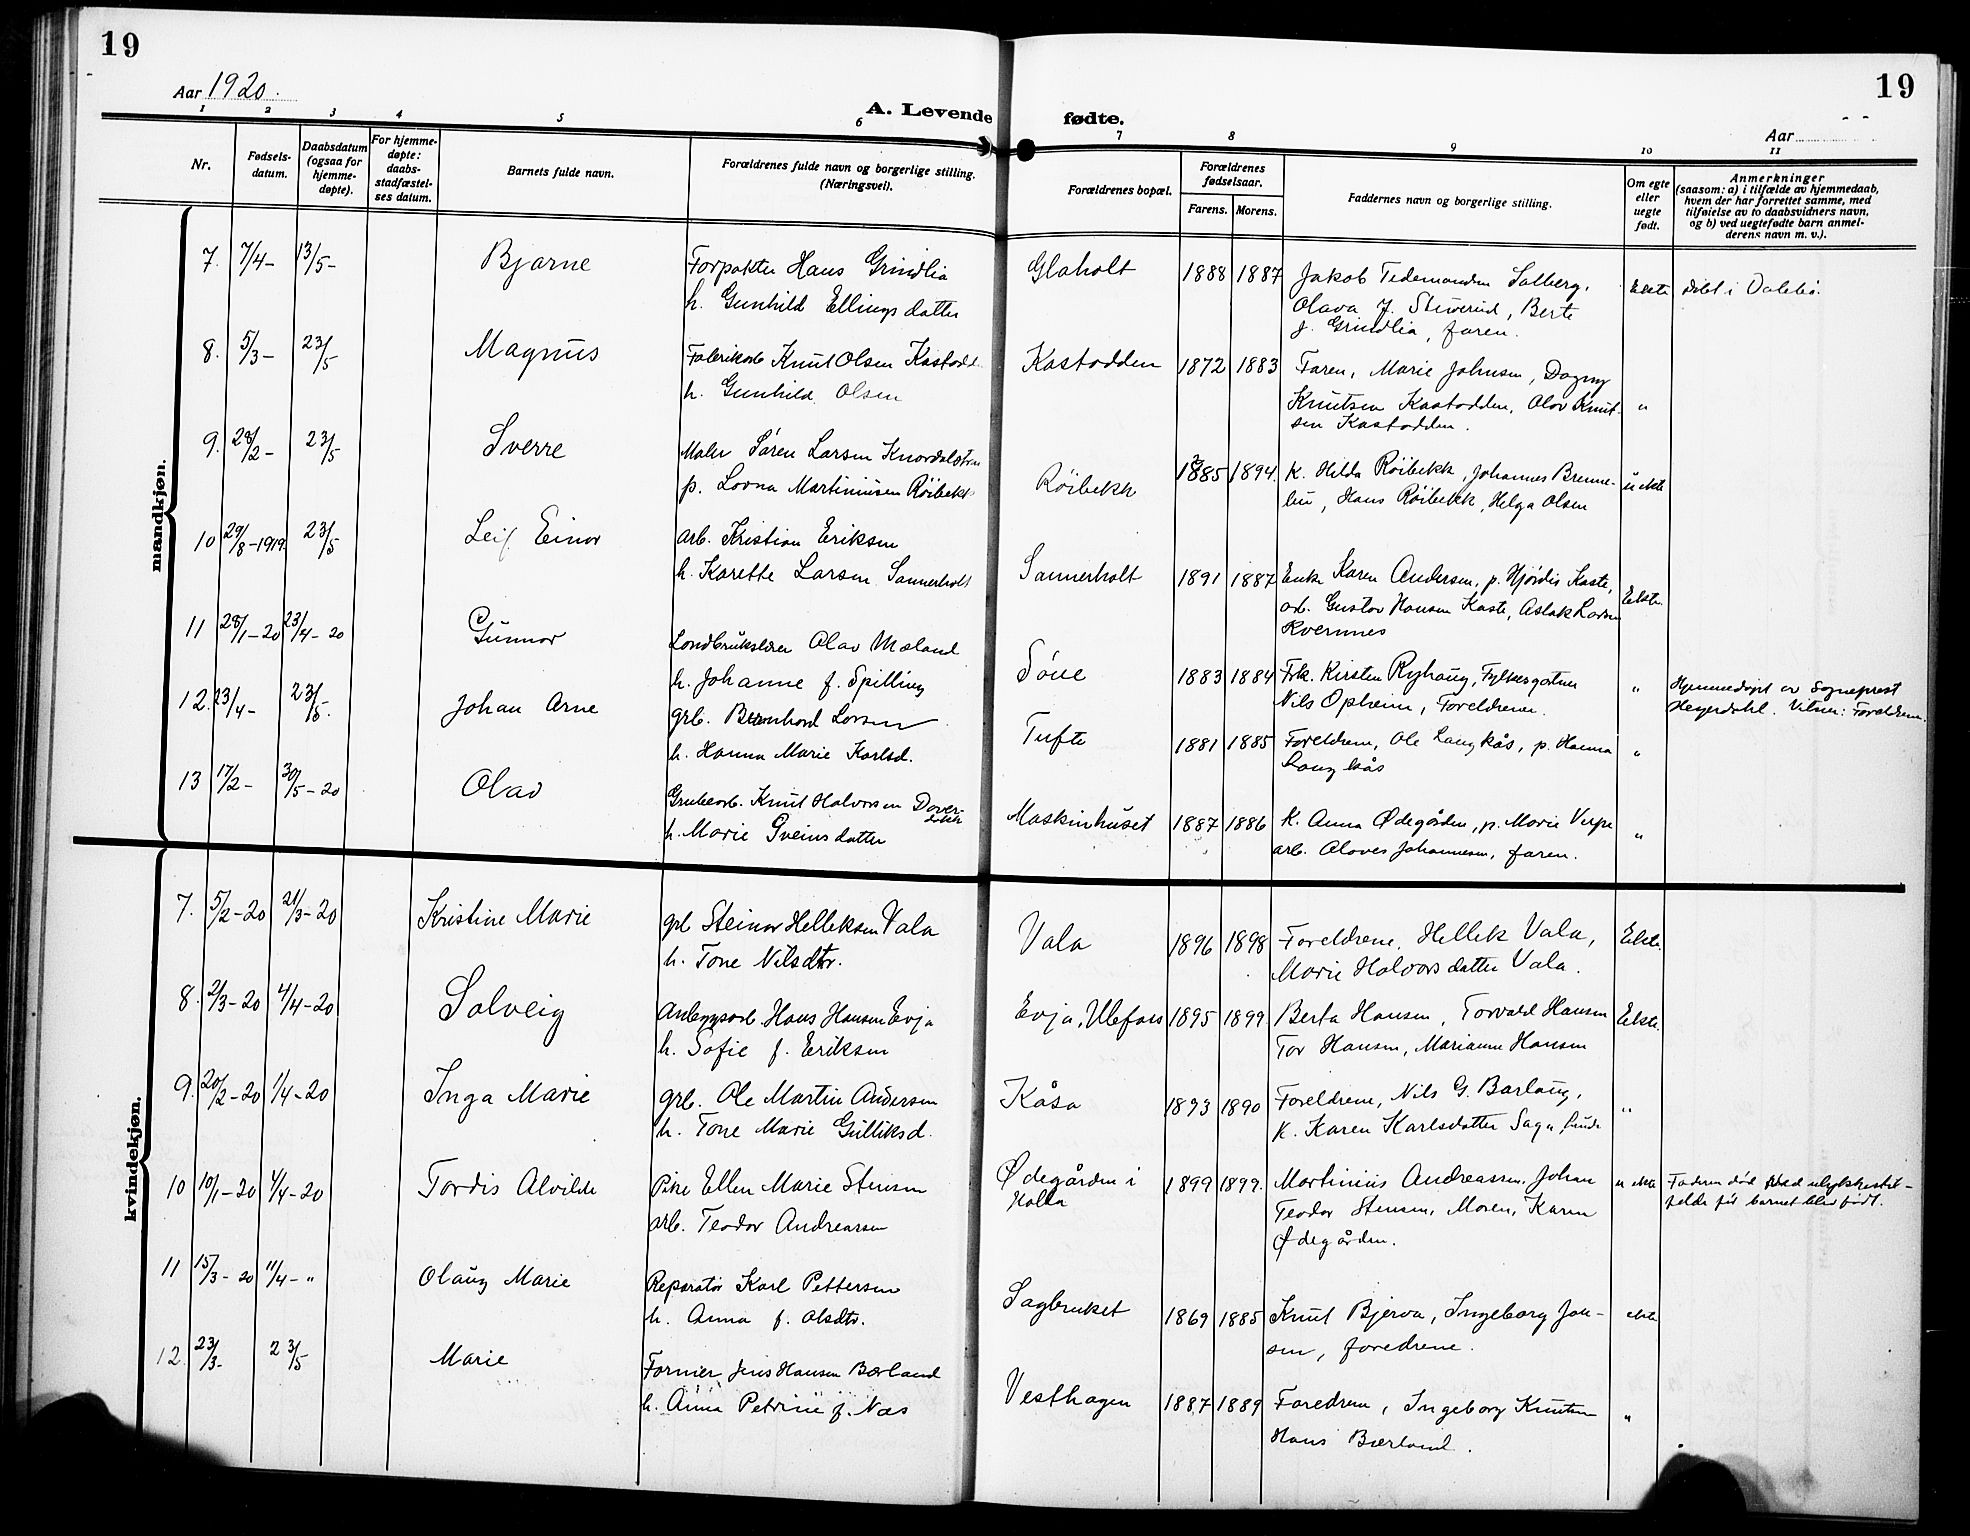 19
19
Aar 1920.
A. Levende fødte.
Aar
1 2 3 4 5 6 7 8 9 10 11
Nr.
Fødsels-
datum.
Daabsdatum
(ogsaa for
hjemme-
døpte).
For hjemme-
døpte:
daabs-
stadfæstel-
ses datum.
Barnets fulde navn.
Forældrenes fulde navn og borgerlige stilling.
(Næringsvei).
Forældrenes bopæl.
Forældrenes
fødselsaar.
Farens. Morens.
Faddernes navn og borgerlige stilling.
Om egte
eller
uegte
født.
Anmerkninger
(saasom: a) i tilfælde av hjemmedaab,
hvem der har forrettet samme, med
tilføielse av to daabsvidners navn,
og b) ved uegtefødte barn anmel-
derens navn m. v.).
mandkjøn.
7. 7/4- 13/5- Bjarne
Forpakter Hans Grindlia
h. Gunhild Ellings datter
Glaholt 1888 1887
Jakob Tedemandsen Solberg,
Olava J. Stuverud, Berte
J. Grindlia, faren.
Ekte
8. 5/3- 23/5 Magnus
Fabrikarb Knut Olsen Kastodd
h. Gunhild Olsen
Kastodden 1872 1883
Faren, Marie Johnsen, Dagny
Knutsen Kastodden, Olav Knut-
sen Kastodden.
"
9. 28/2- 23/5 Sverre
Maler Søren Larsen
p. Lovna Martinusen Røibekk
Røibekk 1885 1894.
K. Hilda Røibekk, Johannes Brenne-
bu, Hans Røibekk, Helga Olsen
u ekte
10 29/8-1919. 23/5 Leif Einar
arb. Kristian Eriksen
h. Karette Larsen Sannerholt
Sannerholt 1891 1887
Enke Karen Andersen, p. Hjørdis Kaste,
arb. Gustav Hansen Kaste, Aslak Larsen
Kvernnes
Ekte.
11 28/1-20 23/4-20 Gunnar
Landbrukslærer Olav Mæland
h. Johanne f. Spilling
Søve 1883 1884
Frk. Kirsten Ryhaug, Fylkesgartner
Nils Opheim, Foreldrene.
"
Hjemmedøpt av Sogneprest
Heyerdahl. Vitner: Foreldrene.
12. 23/4- 23/5. Johan Arne
grb. Bernhard Larsen
h. Hanna Marie Karlsd.
Tufte 1881 1885
Foreldrene, Ole Langkås, p. Hanna
Langkås
"
13 17/2- 30/5-20 Olav
Grubearb. Knut Halvorsen Dover-
h. Marie Sveins datter
Maskinhuset 1887 1886
K. Anna Ødegården, p. Marie Verpe
arb. Aloves Johannesen, faren.
"
kvindekjøn.
7. 5/2-20 21/3-20 Kristine Marie
grb Steinar Helleksen Vala
h. Tone Nilsdtr.
Vala 1896 1898
Foreldrene, Hellek Vala,
Marie Halvors datter Vala.
Ekte.
8. 2/3-20 4/4-20 Solveig
Anleggsarb. Hans Hansen Evja
h. Sofie f. Eriksen
Evja, Ulefoss 1895 1899
Berta Hansen, Torvald Hansen
Tor Hansen, Marianne Hansen
Ekte.
9. 20/2-20 1/4-20 Inga Marie
grb. Ole Martin Andersen
h. Tone Marie Gulliksd.
Kåsa 1893 1890
Foreldrene, Nils G. Barlaug,
K. Karen Karlsdatter
"
10 10/1-20 4/4-20 Tordis Alvilde
Pike Ellen Marie Stensen
arb. Teodor Andreassen
Ødegården i
Holla
1899 1899.
Martinius Andreassen, Johan
Teodor Stensen, Moren, Karen
Ødegården.
u ekte
Faderen død ved ulykkestil-
felde før barnet blev født.
11 15/3-20 11/4-" Olaug Marie
Reparatør Karl Pettersen
h. Anna f. Olsdtr.
Sagbruket 1869 1885
Knut Bjerva, Ingeborg Jon-
sen, foredrene.
ekte
12. 23/3- 23/5 Marie
Former Jens Hansen Bærland
h. Anna Petrine f. Næs
Vesthagen 1887 1889
Foredrene, Ingeborg Knutsen
Hans Bærland.
"